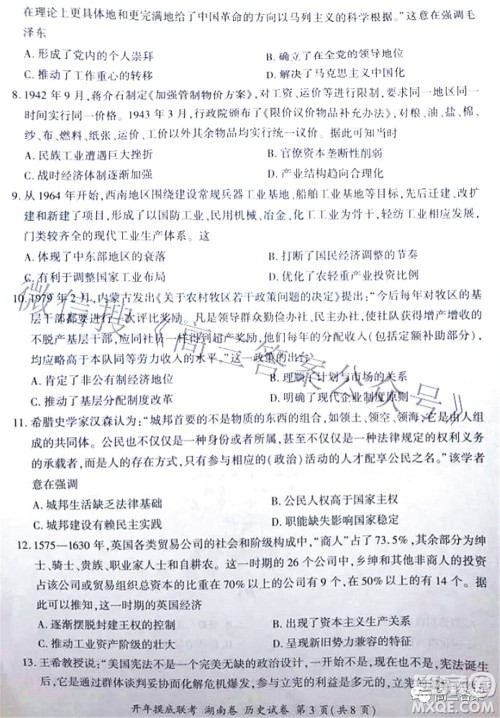 在理论上更具体地和更完满地给了中国革命的方向以马列主义的科学根据。”这意在强调毛
泽东
A. 形成了党内的个人崇拜
B. 确立了在全党的领导地位
C. 推动了工作重心的转移
D. 解决了马克思主义中国化
8. 1942 年 9 月，蒋介石制定《加强管制物价方案》，对工资、运价等进行限制，要求同一地区同一
时间实行同一价格。1943 年 3 月，行政院颁布《限价议价物品补充办法》，对粮、油、盐、棉、
纱、布、燃料、纸张、运价、工价以外其余物品均实行统一议价。据此可知，此时国统区
A. 民族工业遭遇巨大挫折
B. 官僚资本垄断性削弱
C. 战时经济体制逐渐加强
D. 产业结构趋向合理化
9. 从 1964 年开始，西南地区围绕建设常规兵器工业基地、船舶工业基地等目标，先后迁建、改扩
建和新建了项目，形成了以国防工业、民用机械、冶金、化工为骨干，轻纺工业相应发展，
门类较齐全的现代工业生产体系。这
A. 体现了中东部地区的衰落
B. 打断了国民经济调整的节奏
C. 有利于调整国家工业布局
D. 形成了经济发展新的增长极
10. 1979 年 2 月，内蒙古发出《关于农村牧区若干政策问题的决定》提出：“今后每年对牧区的基
层干部都要进行一次评比奖励。但领导群众勤俭办社，民主办社，使集体经济获得增产增收的
不脱产基层干部，应同社员一样得到超产奖励，他们每年的分配收入(包括定额补助部分)，
均应略高于本队同等劳力收入的水平。”这一政策的出台
A. 肯定了非公有制经济地位
B. 理顺了计划与市场的关系
C. 推动了基层分配制度改革
D. 明确了现代企业制度原则
11. 希腊史学家汉森认为：“城邦首要的不是物质的东西的组合，如领土、领空、领海；它是由人组
成的共同体。公民也不仅仅只是一种身份或者所属，甚至也不仅仅是一种法律规定的权利义务
的承载者，而是人的存在方式，只有参与(政治)活动的人才配享公民之名。”该学者
意在强调
A. 城邦生活缺乏法律基础
B. 公民人权高于国家主权
C. 城邦建设有赖民主实践
D. 职能缺失导致国家灭亡
12. 1575—1630 年，英国各类贸易公司的社会和阶级构成中，“商人”占了 73.5%，其余分别为绅
士、骑士、贵族、专业人士和自耕农。这一时期的 26 个公司中，乡绅和其他非商人的投资
占该公司或贸易组织总资本的比重在 70% 以上的有 9 个，在 50% 以上的有 14 个。据此可
知，这一时期的英国经济
A. 逐渐摆脱封建王权的控制
B. 出现了资本主义生产关系
C. 推动工业资产阶级的壮大
D. 呈现新旧势力兼容的特征
13. 王希教授说：“美国宪法不是一个完美无缺的政治设计，一开始就不是，但它在实践中逐渐
通过反复的妥协而化解危机爆发、参与利益
开年摸底联考 湖南卷 历史试卷 第 3 页(共 8 页)
微信搜《高三答案公众号》